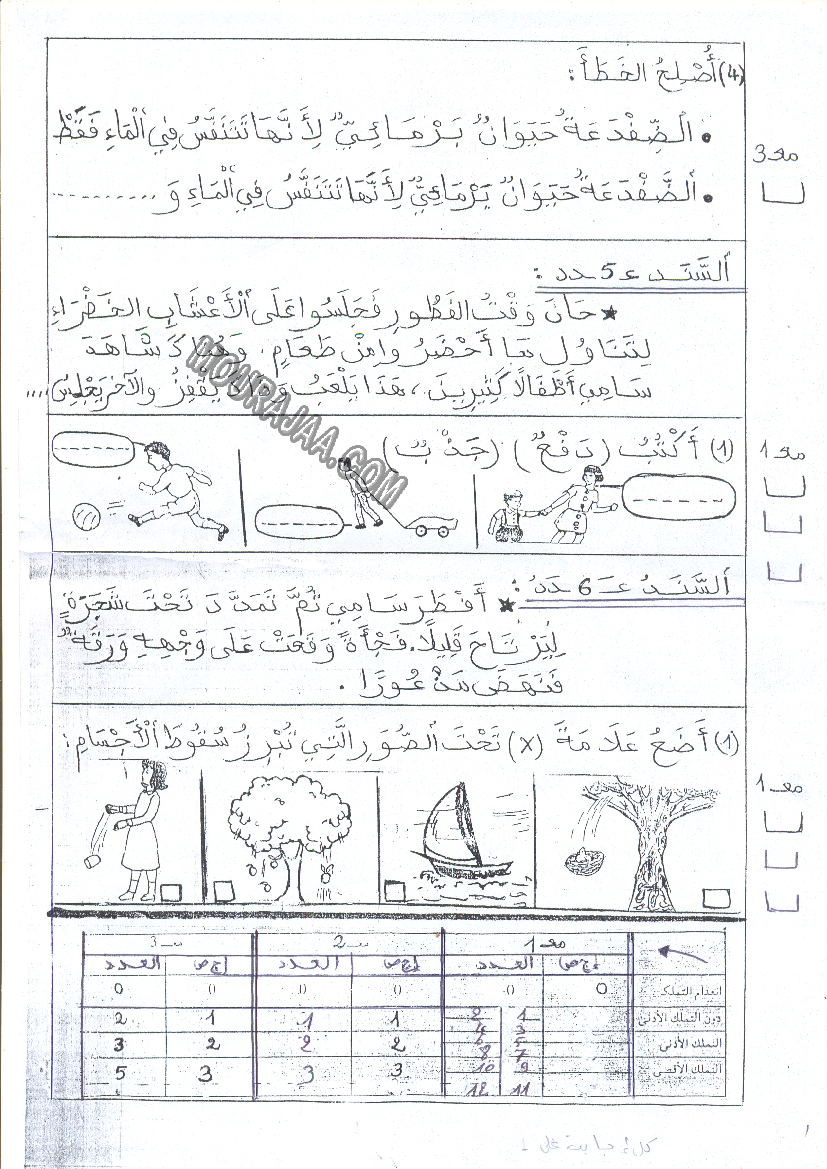 4) أُصْلِحُ الخَطَأَ :
• الضِّفْدَعَةُ حَيَوَانٌ بَرْمَائِيٌّ لِأَنَّهَا تَتَنَفَّسُ فِي ٱلْمَاءِ فَقَطْ
مع3
• الضَّفْدَعَةُ حَيَوَانٌ بَرْمَائِيٌّ لِأَنَّهَا تَتَنَفَّسُ فِي ٱلْمَاءِ وَ ...........
ٱلسَّنَد عـ5ـدد :
★ حَانَ وَقْتُ الفَطُورِ فَجَلَسُوا عَلَى ٱلْأَعْشَابِ الخَضْرَاءِ
لِتَنَاوُلِ مَا أَحْضَرُوا مِنْ طَعَامٍ . وَهُنَاكَ شَاهَدَ
سَامِي أَطْفَالًا كَثِيرِينَ ، هَذَا يَلْعَبُ وَذَاكَ يَقْفِزُ والآخَر يَجْلِسُ ....
MOURAJAA.COM
1) أَكْتُبُ (دَفْعٌ) (جَذْبٌ)
مع1
ٱلسَّنَدُ عـ6ـدَدُ : ★ أَفْطَرَ سَامِي ثُمَّ تَمَدَّدَ تَحْتَ شَجَرَةٍ
لِيَرْتَاحَ قَلِيلًا. فَجْأَةً وَقَعَتْ عَلَى وَجْهِهِ وَرَقَةٌ
فَنَهَضَ مَذْعُورًا .
1) أَضَعُ عَلَامَةَ (x) تَحْتَ ٱلصُّوَرِ الَّتِي تُبْرِزُ سُقُوطَ ٱلْأَجْسَامِ :
مع1
مع1 مـ2 مـ3
إج ص العـدد إج ص العـدد إج ص العـدد
انعدام التملك 0 0 0 0 0 0
دون التملك الأدنى 1 2 1 1 1 2
3 4
التملك الأدنى 5 6 2 2 2 3
7 8
التملك الأقصى 9 10 3 3 3 5
11 12
كل إجابة على 1